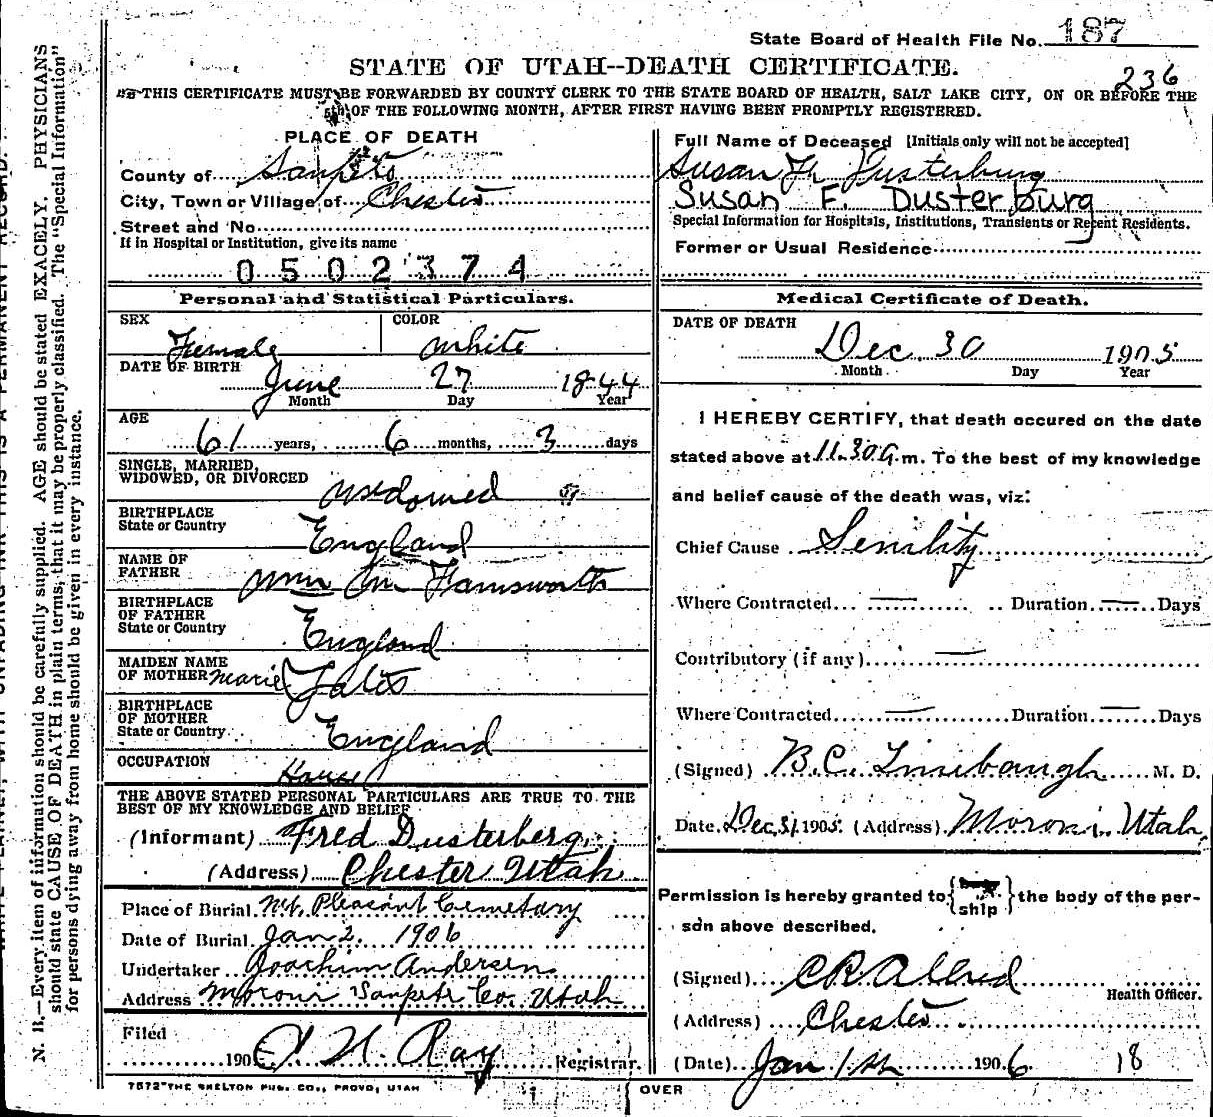 State Board of Health File No. 187
STATE OF UTAH--DEATH CERTIFICATE.
236
THIS CERTIFICATE MUST BE FORWARDED BY COUNTY CLERK TO THE STATE BOARD OF HEALTH, SALT LAKE CITY, ON OR BEFORE THE
5th OF THE FOLLOWING MONTH, AFTER FIRST HAVING BEEN PROMPTLY REGISTERED.
PLACE OF DEATH
County of Sanpete
City, Town or Village of Chester
Street and No.
If in Hospital or Institution, give its name
0502374
Full Name of Deceased [Initials only will not be accepted]
Susan Dusterburg
Susan F. Dusterburg
Special Information for Hospitals, Institutions, Transients or Recent Residents.
Former or Usual Residence
Personal and Statistical Particulars.
SEX
Female
COLOR
White
DATE OF BIRTH
June 27 1844
Month Day Year
AGE
61 years, 6 months, 3 days
SINGLE, MARRIED,
WIDOWED, OR DIVORCED widowed
BIRTHPLACE
State or Country England
NAME OF
FATHER Wm M Farnsworth
BIRTHPLACE
OF FATHER
State or Country England
MAIDEN NAME
OF MOTHER Marie Yates
BIRTHPLACE
OF MOTHER
State or Country England
OCCUPATION House
THE ABOVE STATED PERSONAL PARTICULARS ARE TRUE TO THE
BEST OF MY KNOWLEDGE AND BELIEF
(Informant) Fred Dusterberg
(Address) Chester Utah
Place of Burial Mt. Pleasant Cemetary
Date of Burial Jan 2. 1906
Undertaker Joachim Andersen
Address Moroni Sanpete Co. Utah
Filed
190 H. Ray Registrar.
Medical Certificate of Death.
DATE OF DEATH
Dec. 30 1905
Month Day Year
I HEREBY CERTIFY, that death occured on the date
stated above at 11.30 a.m. To the best of my knowledge
and belief cause of the death was, viz:
Chief Cause Senility
Where Contracted — Duration — Days
Contributory (if any) —
Where Contracted — Duration — Days
(Signed) B.C. Linebaugh M. D.
Date Dec 31 1905. (Address) Moroni Utah
Permission is hereby granted to { ship } the body of the per-
son above described.
(Signed) C R Allred
Health Officer.
(Address) Chester
(Date) Jan 1st 1906 18
7572 THE SKELTON PUB. CO., PROVO, UTAH
OVER
N. B.—Every item of information should be carefully supplied. AGE should be stated EXACELY. PHYSICIANS
should state CAUSE OF DEATH in plain terms, that it may be properly classified. The "Special Information"
for persons dying away from home should be given in every instance.